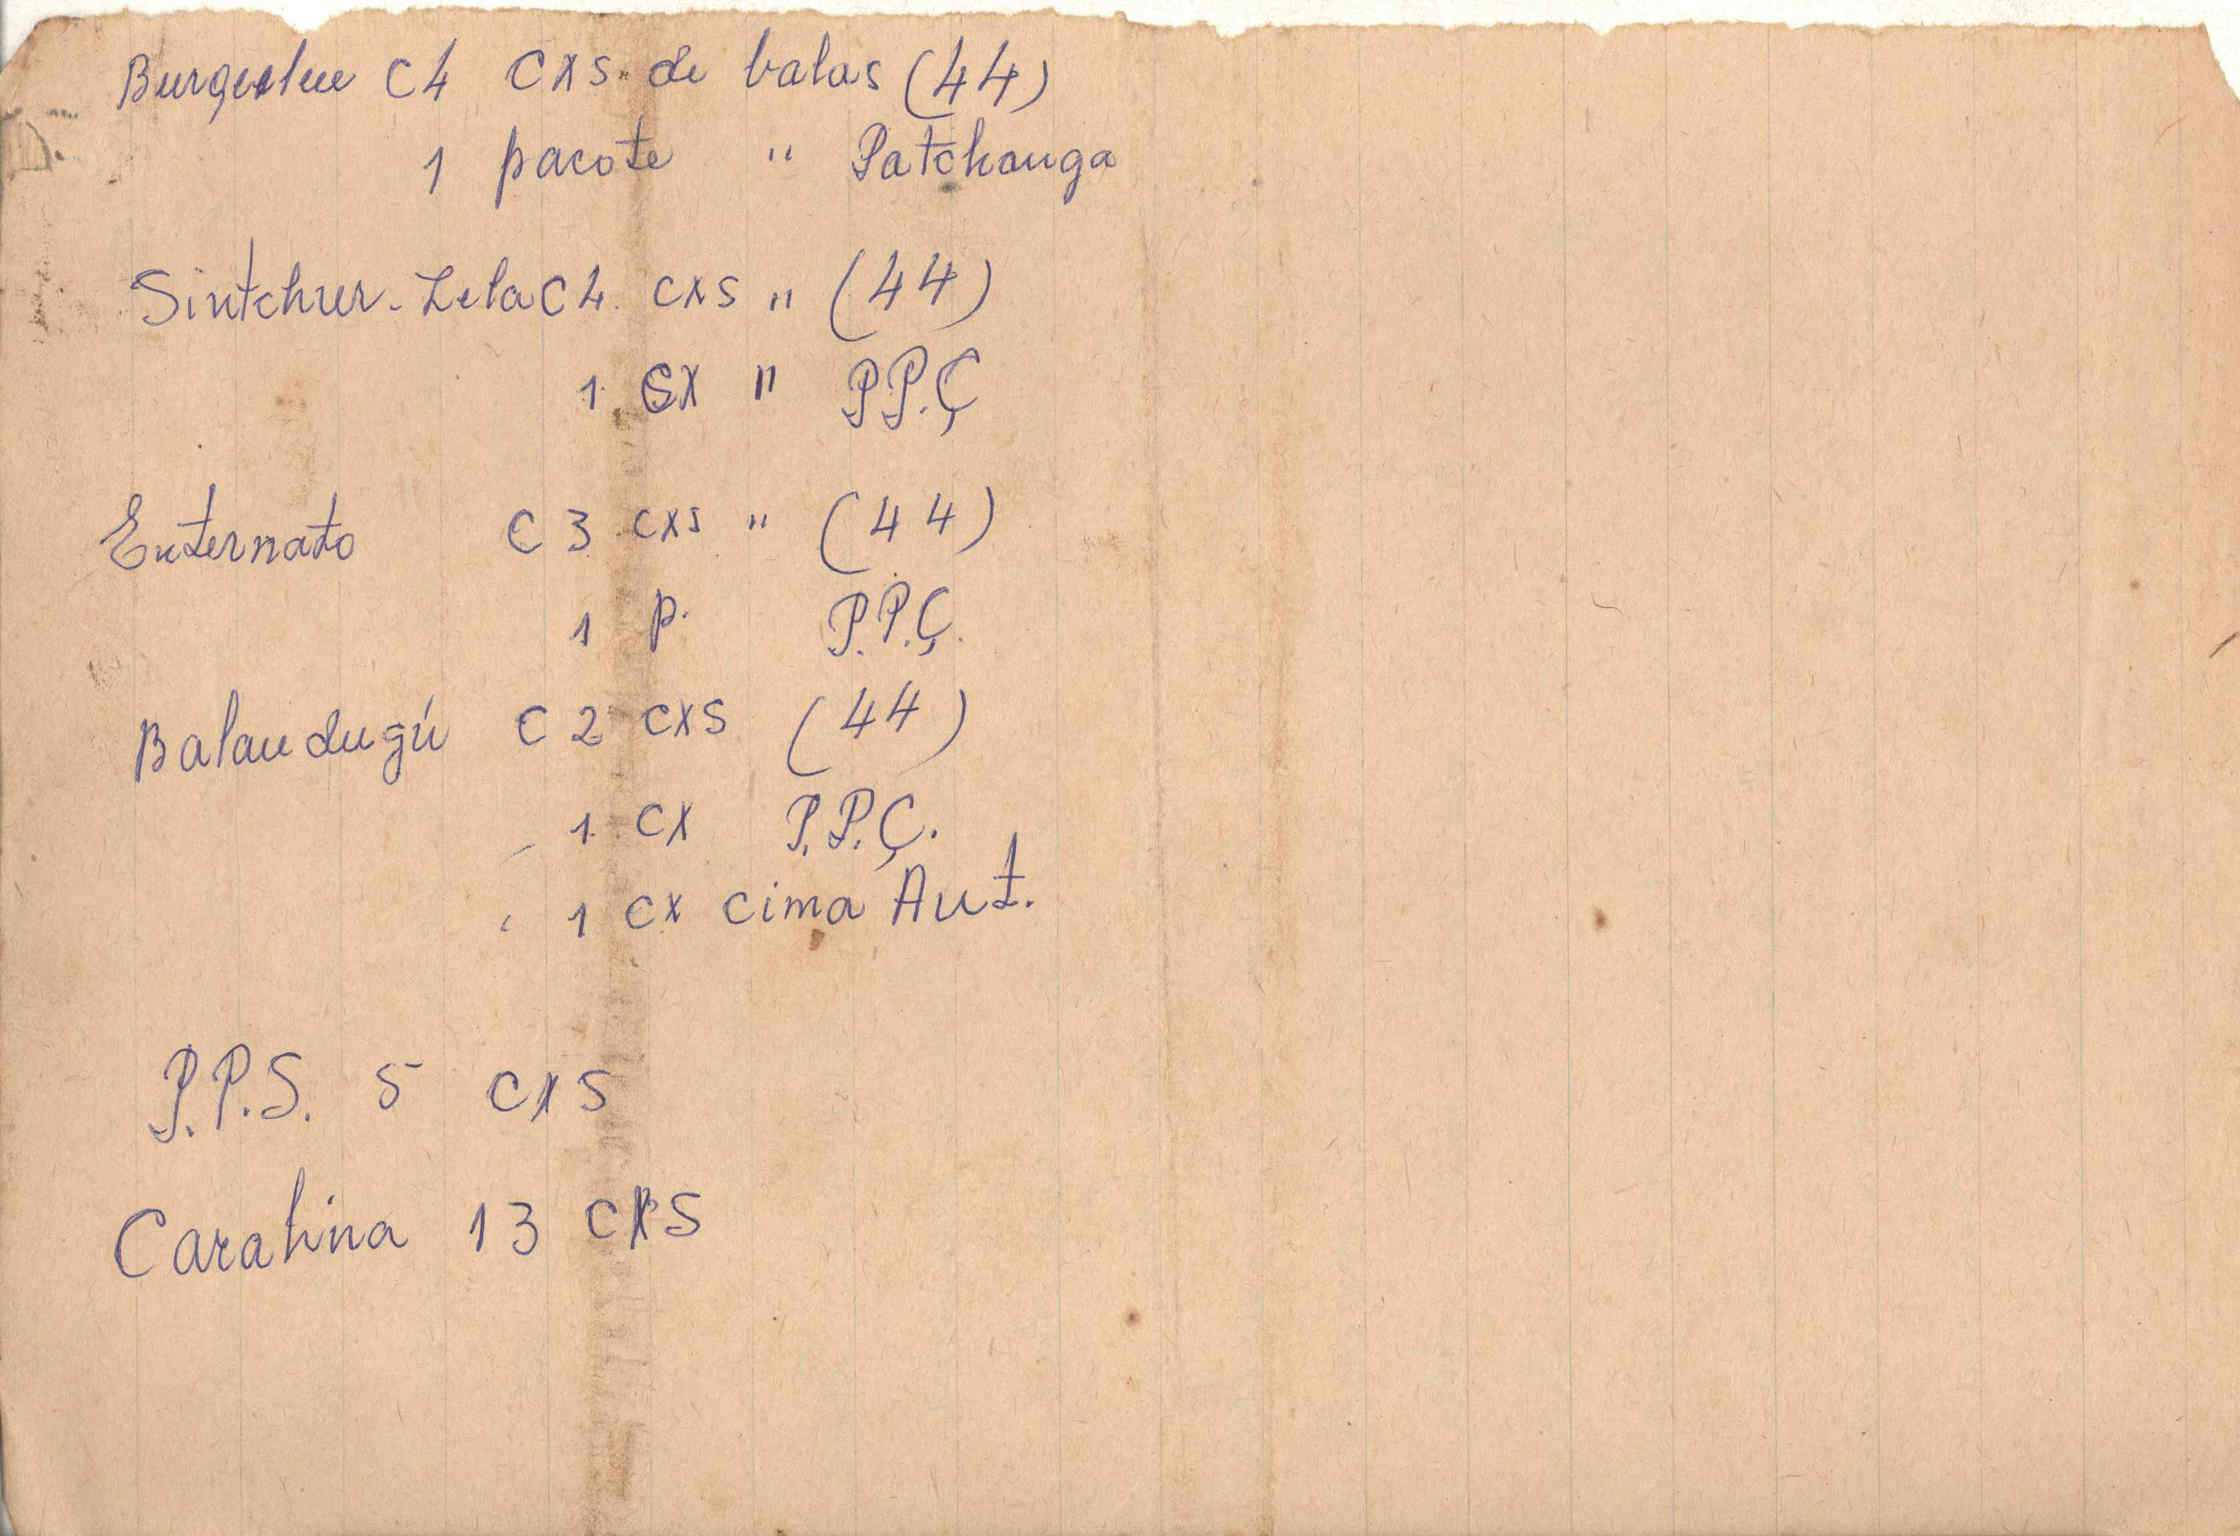 Burgulen C4 cxs. de balas (44)
1 pacote " Patchanga
Sintchur-Lela C4 cxs " (44)
1 cx " P.P.Ç
Enternato C 3 cxs " (44)
1 p. P.P.Ç.
Balandugú C 2 cxs (44)
1 cx P.P.Ç.
1 cx cima Aut.
P.P.S. 5 cxs
Carabina 13 cxs